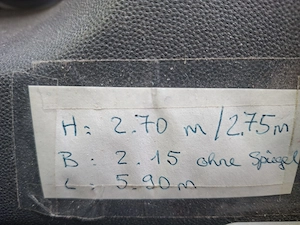 H: 2.70 m/2.75m
B: 2.15 ohne Spiegel
L: 5.90m